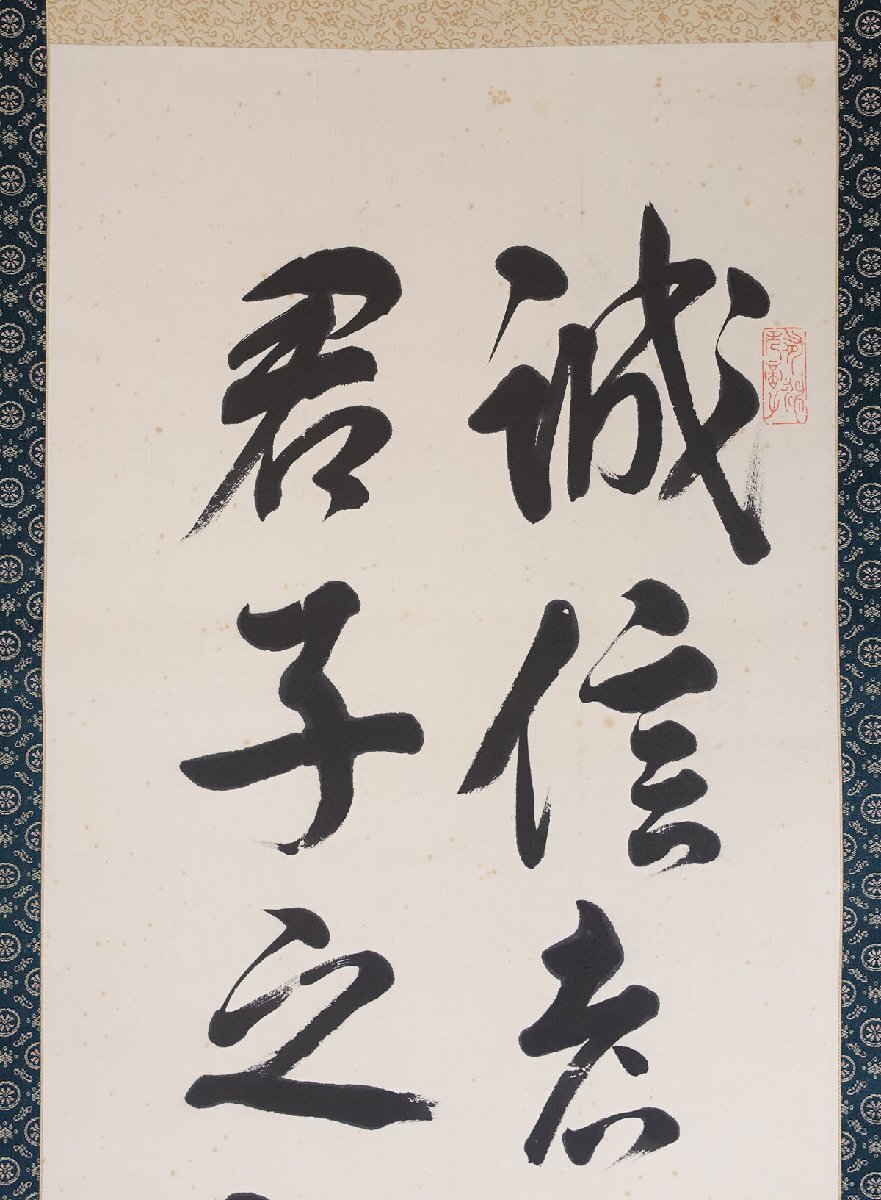 誠信者
君子之